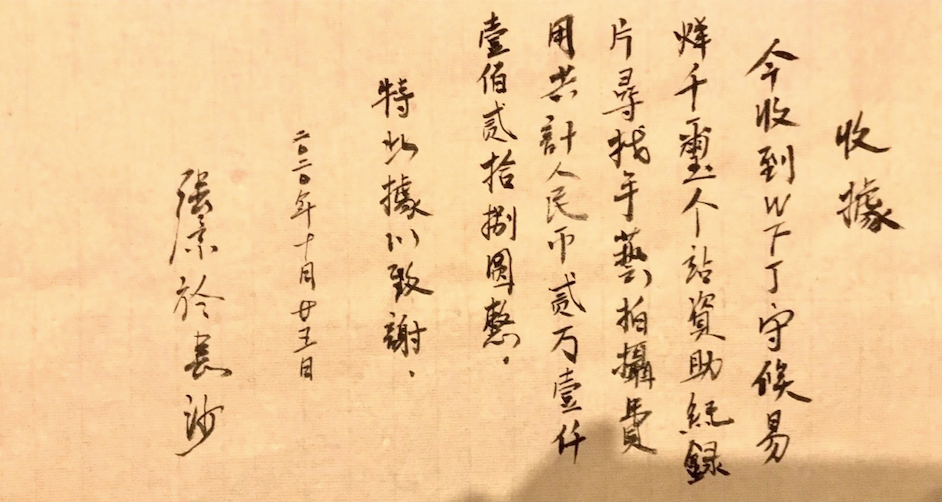 收據
今收到WTT守候易
烊千璽个站資助紀録
片尋找手藝拍攝費
用共計人民币贰万壹仟
壹佰贰拾捌圓整。
特此據以致謝.
二〇二〇年十月廿五日
張景於長沙